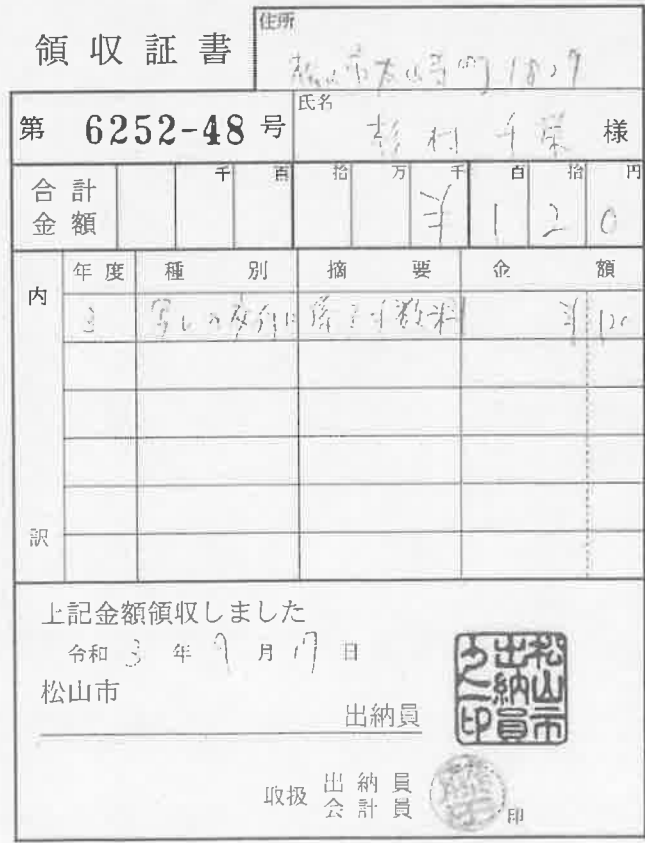 領収証書
住所
松山市太山寺町1829
第 6252-48 号
氏名
杉村千栄 様
合計金額
千 百 拾 万 千 百 拾 円
¥120
内訳
年度 種別 摘要 金額
3 写しの交付に係る手数料 ¥120
上記金額領収しました
令和 3 年 9 月 17 日
松山市
出納員
松山市出納員之印
取扱 出納員
会計員
印